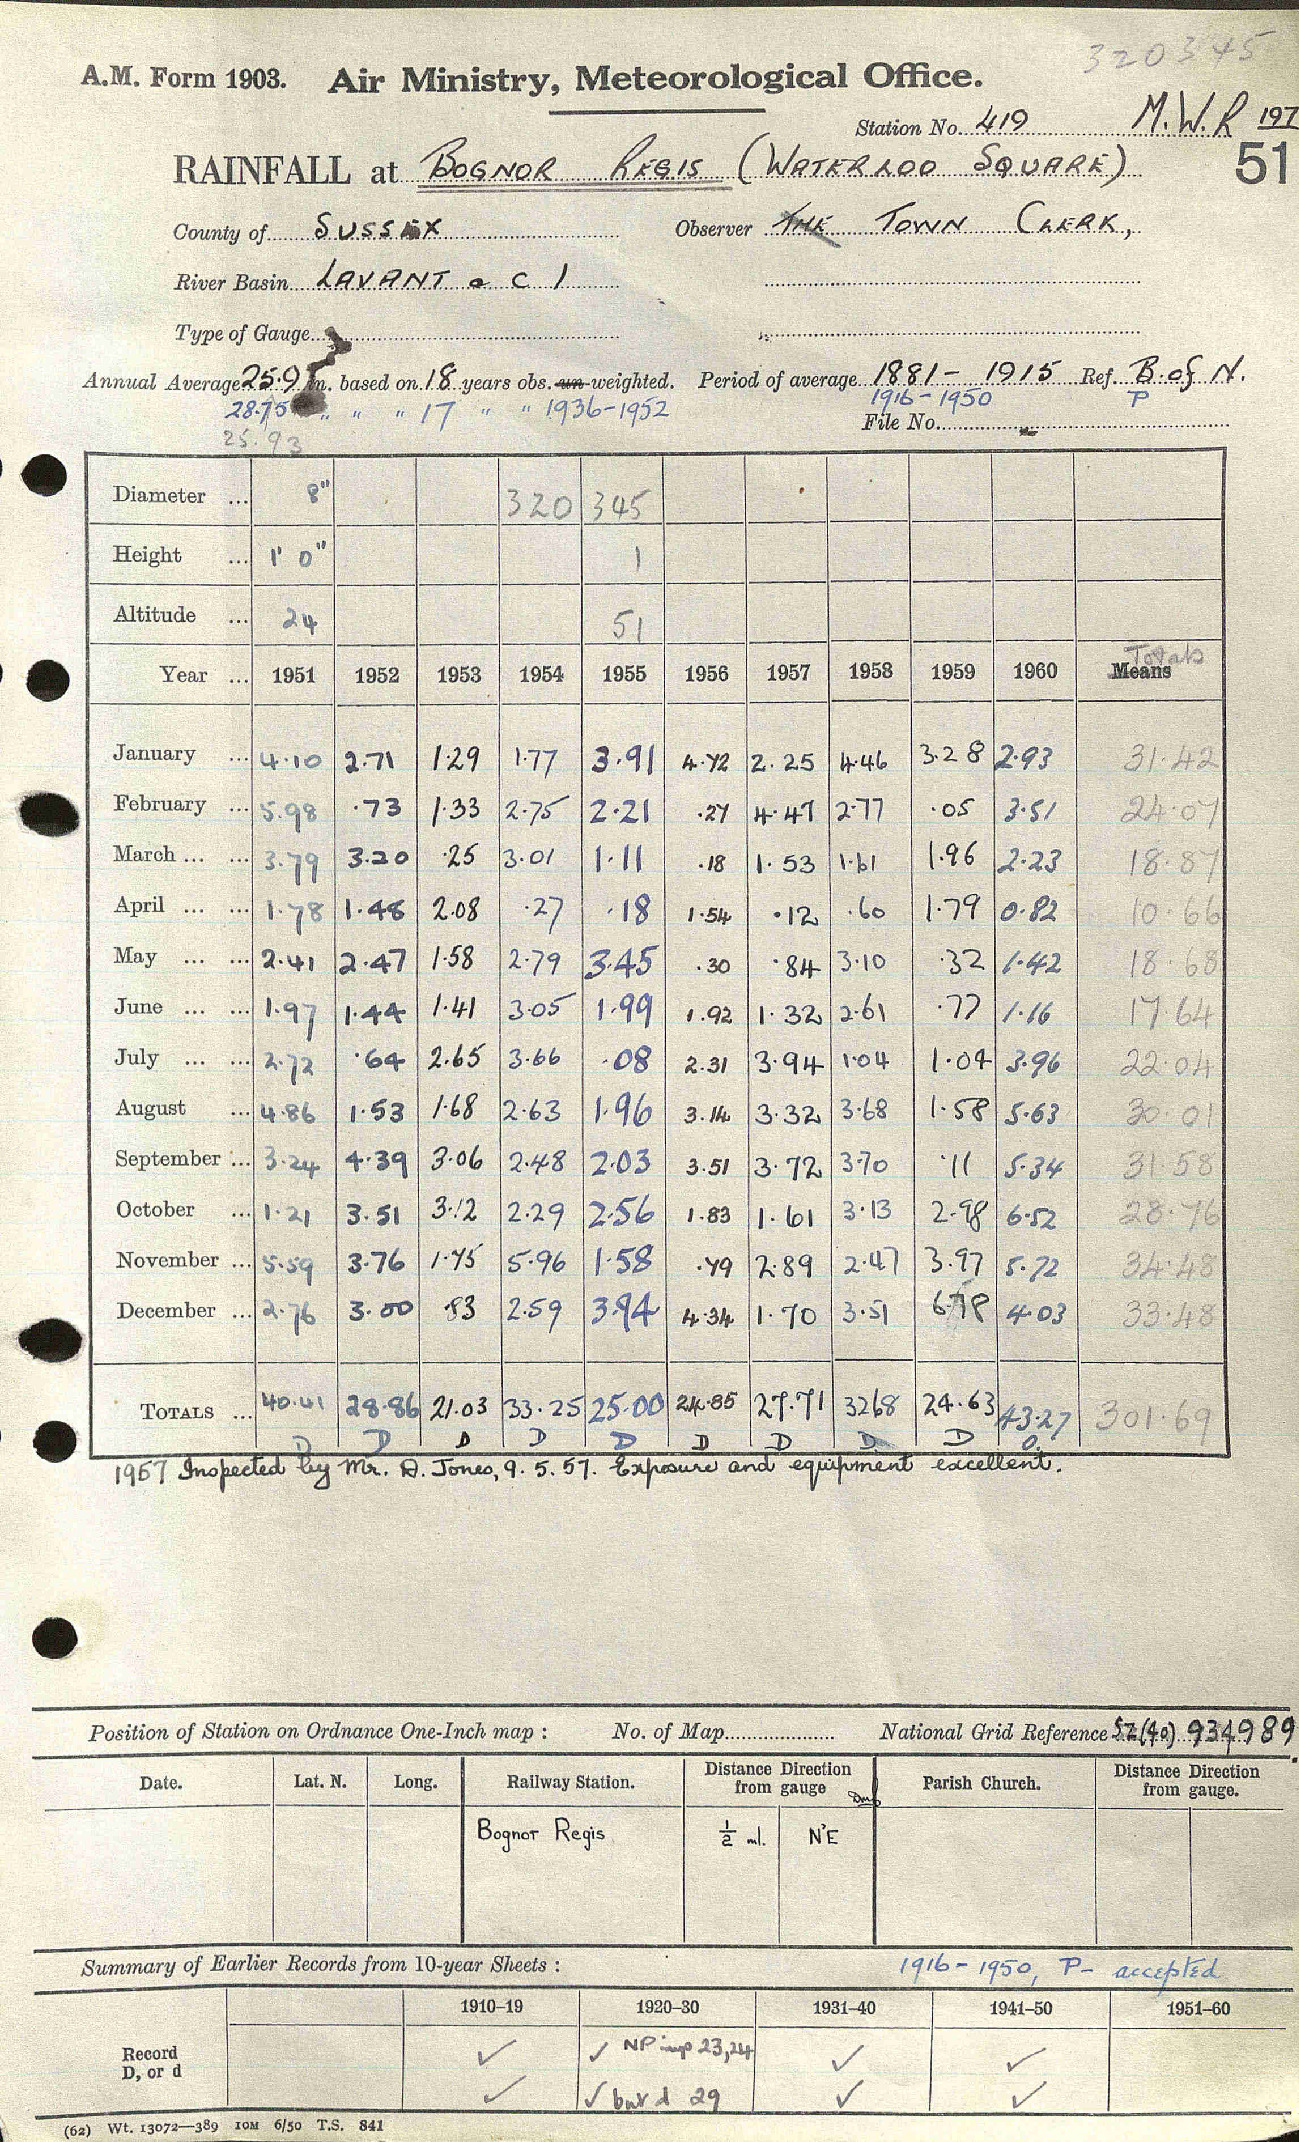 320345
A.M. Form 1903. Air Ministry, Meteorological Office.
Station No. 419 M.W.R 197
RAINFALL at BOGNOR REGIS (WATERLOO SQUARE) 51
County of SUSSEX Observer THE TOWN CLERK,
River Basin LAVANT & C 1
Type of Gauge
Annual Average 25.95 in. based on 18 years obs. un-weighted. Period of average 1881 - 1915 Ref. B. of N.
28.75 " " " 17 " " 1936-1952 1916-1950 P
25.93 File No.
Diameter ... 8" 320 345
Height ... 1' 0" 1
Altitude ... 24 51
Totals
Year ... 1951 1952 1953 1954 1955 1956 1957 1958 1959 1960 Means
January ... 4.10 2.71 1.29 1.77 3.91 4.72 2.25 4.46 3.28 2.93 31.42
February ... 5.98 .73 1.33 2.75 2.21 .27 4.47 2.77 .05 3.51 24.07
March ... ... 3.79 3.20 .25 3.01 1.11 .18 1.53 1.61 1.96 2.23 18.87
April ... ... 1.78 1.48 2.08 .27 .18 1.54 .12 .60 1.79 0.82 10.66
May ... ... 2.41 2.47 1.58 2.79 3.45 .30 .84 3.10 .32 1.42 18.68
June ... ... 1.97 1.44 1.41 3.05 1.99 1.92 1.32 2.61 .77 1.16 17.64
July ... ... 2.72 .64 2.65 3.66 .08 2.31 3.94 1.04 1.04 3.96 22.04
August ... 4.86 1.53 1.68 2.63 1.96 3.14 3.32 3.68 1.58 5.63 30.01
September ... 3.24 4.39 3.06 2.48 2.03 3.51 3.72 3.70 .11 5.34 31.58
October ... 1.21 3.51 3.12 2.29 2.56 1.83 1.61 3.13 2.98 6.52 28.76
November ... 5.59 3.76 1.75 5.96 1.58 .79 2.89 2.47 3.97 5.72 34.48
December ... 2.76 3.00 .83 2.59 3.94 4.34 1.70 3.51 6.78 4.03 33.48
TOTALS ... 40.41 28.86 21.03 33.25 25.00 24.85 27.71 32.68 24.63 43.27 301.69
D D D D D D D D D D
1957 Inspected by Mr. D. Jones, 9.5.57. Exposure and equipment excellent.
Position of Station on Ordnance One-Inch map : No. of Map National Grid Reference SZ(40) 934989
Date. Lat. N. Long. Railway Station. Distance Direction from gauge Parish Church. Distance Direction from gauge.
Bognor Regis ½ ml. N'E
Summary of Earlier Records from 10-year Sheets : 1916-1950, P- accepted
1910-19 1920-30 1931-40 1941-50 1951-60
Record ✓ ✓ NP imp 23,24 ✓ ✓
D, or d ✓ ✓ but d 29 ✓ ✓
(62) Wt. 13072—389 10M 6/50 T.S. 841